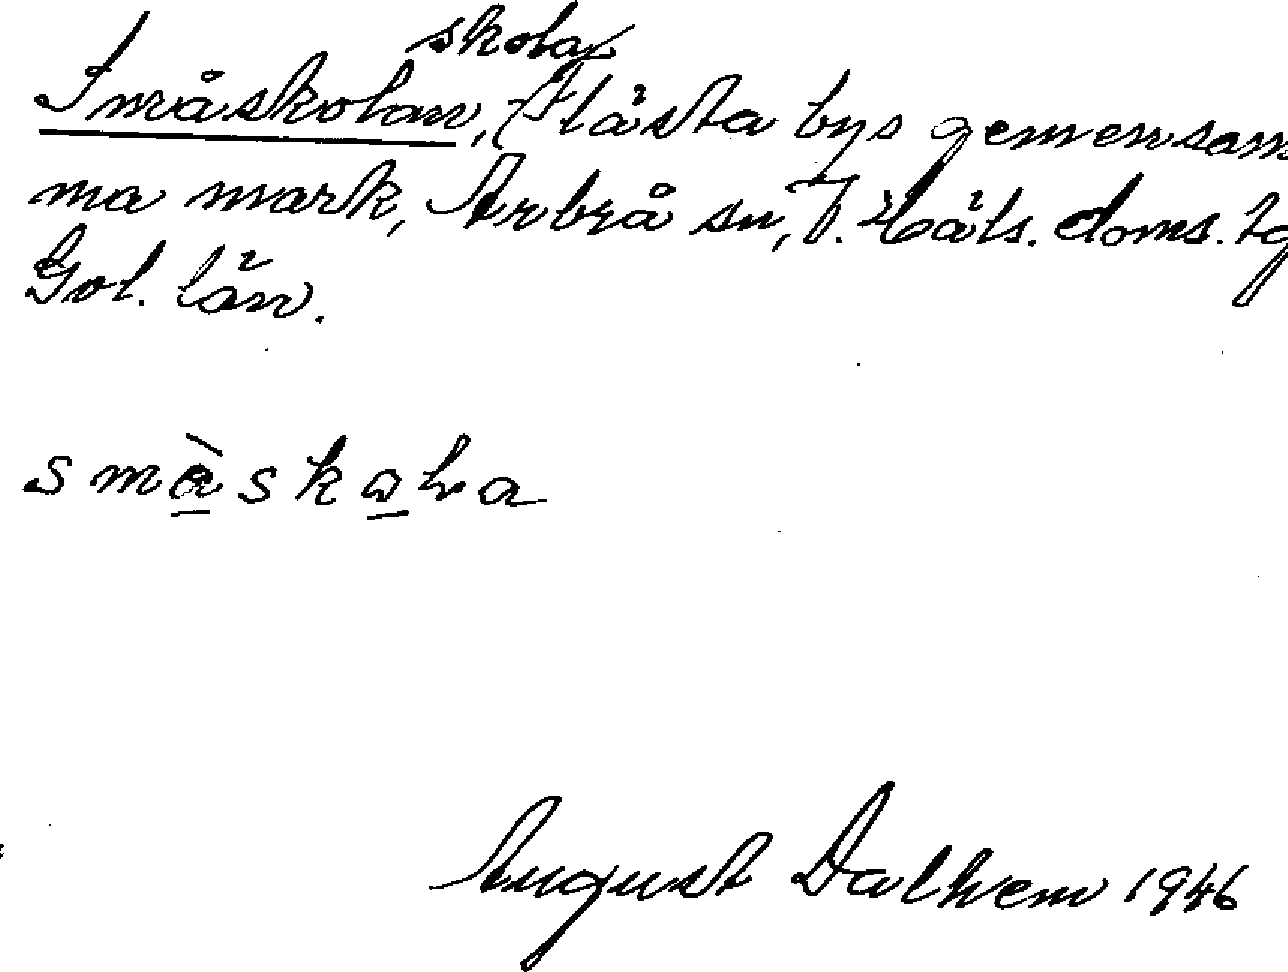 skola,
Småskolan, Flästa bys gemensam
ma mark, Arbrå sn, V. Häls. doms. tg
Gvl. län.
småskola
August Dalhem 1946